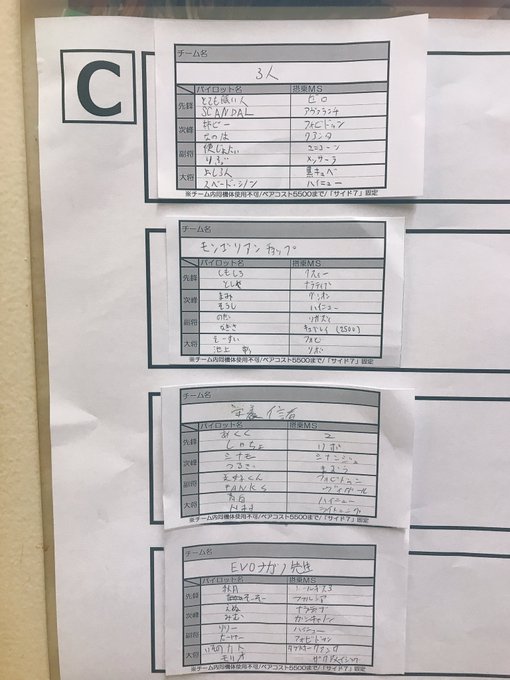 C
チーム名
3人
パイロット名 搭乗MS
先鋒 とても眠い人 ゼロ
SCANDAL アヴァランチ
次峰 フォビドゥン
なのは クアンタ
副将 便じょたい ユニコーン
りぶ メッサーラ
大将 よし3人 黒キュベ
スペード・シノン ハイニュー
※チーム内同機体使用不可/ペアコスト5500まで/「サイド7」固定
チーム名
モンゴリアンチョップ
パイロット名 搭乗MS
先鋒 しもしろ クスィー
としや ナラティブ
次峰 まみ
そうし ハイニュー
副将 のだ リガズィ
なぎさ キュベレイ (2500)
大将 えーすい フォビ
池上 リボ
※チーム内同機体使用不可/ペアコスト5500まで/「サイド7」固定
チーム名
栄養信者
パイロット名 搭乗MS
先鋒 あくく Z
しゃちょ リボ
次峰 シナモ シナンジュ
つるぎ
副将 フォビドゥン
PANKS ヴィダール
大将 ハイニュー
ライトニング
※チーム内同機体使用不可/ペアコスト5500まで/「サイド7」固定
チーム名
EVOナガノ発注
パイロット名 搭乗MS
先鋒 秋月
そーそー ファルシア
次峰 えぬ ナラティブ
みむ
副将 リリー ハイニュー
ヒーロー フォビドゥン
大将 いものカト ダブルオークアンタ
モリオ
※チーム内同機体使用不可/ペアコスト5500まで/「サイド7」固定